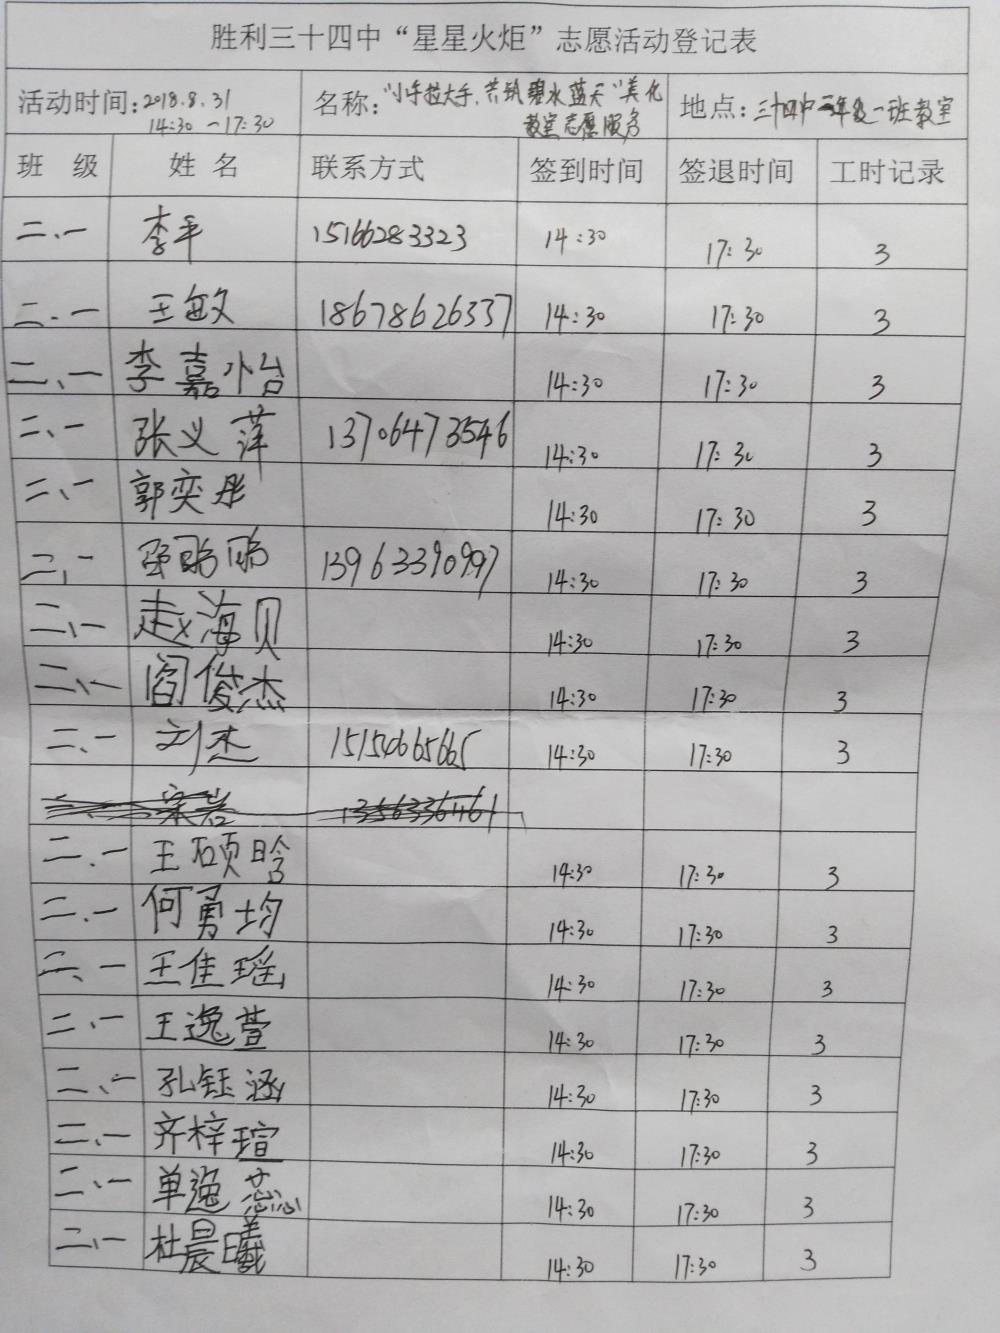 胜利三十四中“星星火炬”志愿活动登记表
活动时间:2018.8.31 名称:“小手拉大手,共筑碧水蓝天”美化 地点:三十四中二年级一班教室
14:30-17:30 教室志愿服务
班 级 姓 名 联系方式 签到时间 签退时间 工时记录
二、一 李平 15166283323 14:30 17:30 3
二.一 王敏 18678626337 14:30 17:30 3
二、一 李嘉怡 14:30 17:30 3
二、一 张义萍 13706473546 14:30 17:30 3
二、一 郭奕彤 14:30 17:30 3
二、一 13963390997 14:30 17:30 3
二、一 赵海贝 14:30 17:30 3
二、一 阎俊杰 14:30 17:30 3
二、一 刘杰 15154665665 14:30 17:30 3
二.一 王硕晗 14:30 17:30 3
二.一 何勇均 14:30 17:30 3
二、一 王佳瑶 14:30 17:30 3
二、一 王逸萱 14:30 17:30 3
二、一 孔钰涵 14:30 17:30 3
二、一 齐梓瑄 14:30 17:30 3
二、一 单逸蕊 14:30 17:30 3
二、一 杜晨曦 14:30 17:30 3